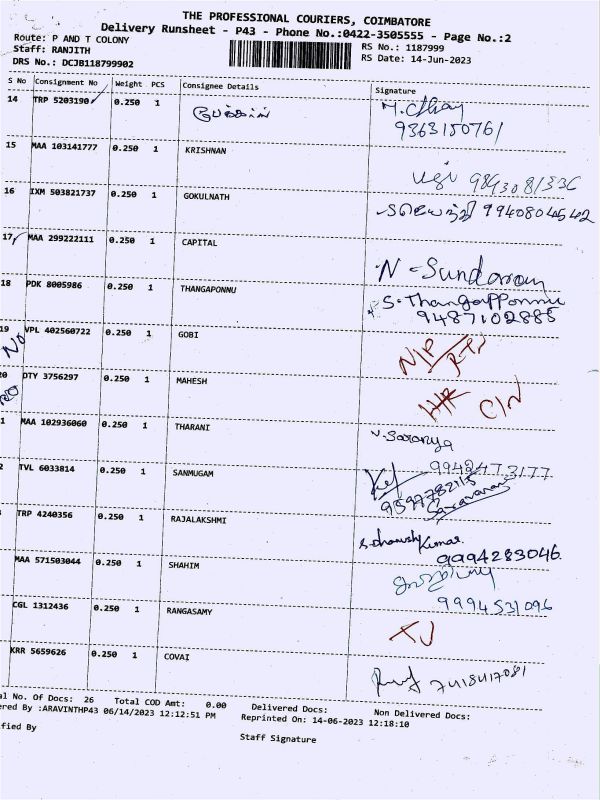 THE PROFESSIONAL COURIERS, COIMBATORE
Delivery Runsheet - P43 - Phone No.:0422-3505555 - Page No.:2
Route: P AND T COLONY
Staff: RANJITH
DRS No.: DCJB118799902
RS No.: 1187999
RS Date: 14-Jun-2023
S No Consignment No Weight PCS Consignee Details Signature
14 TRP 5203190 0.250 1
9363150761
15 MAA 103141777 0.250 1 KRISHNAN
16 IXM 503821737 0.250 1 GOKULNATH
9940804542
17 MAA 299222111 0.250 1 CAPITAL
N - Sundaram
18 PDK 8005986 0.250 1 THANGAPONNU
S. Thangapponnu
9487102885
19 VPL 402560722 0.250 1 GOBI
NO
N/P
20 DTY 3756297 0.250 1 MAHESH
C/N
1 MAA 102936060 0.250 1 THARANI V. Saranya
9942473177
2 TVL 6033814 0.250 1 SANMUGAM
Saravanan
TRP 4240356 0.250 1 RAJALAKSHMI
S. Dhanush Kumar.
9994283046.
MAA 571503044 0.250 1 SHAHIM
9994531096
CGL 1312436 0.250 1 RANGASAMY
KRR 5659626 0.250 1 COVAI
7418417081
al No. Of Docs: 26 Total COD Amt: 0.00 Delivered Docs: Non Delivered Docs:
ered By :ARAVINTHP43 06/14/2023 12:12:51 PM Reprinted On: 14-06-2023 12:18:10
ified By Staff Signature